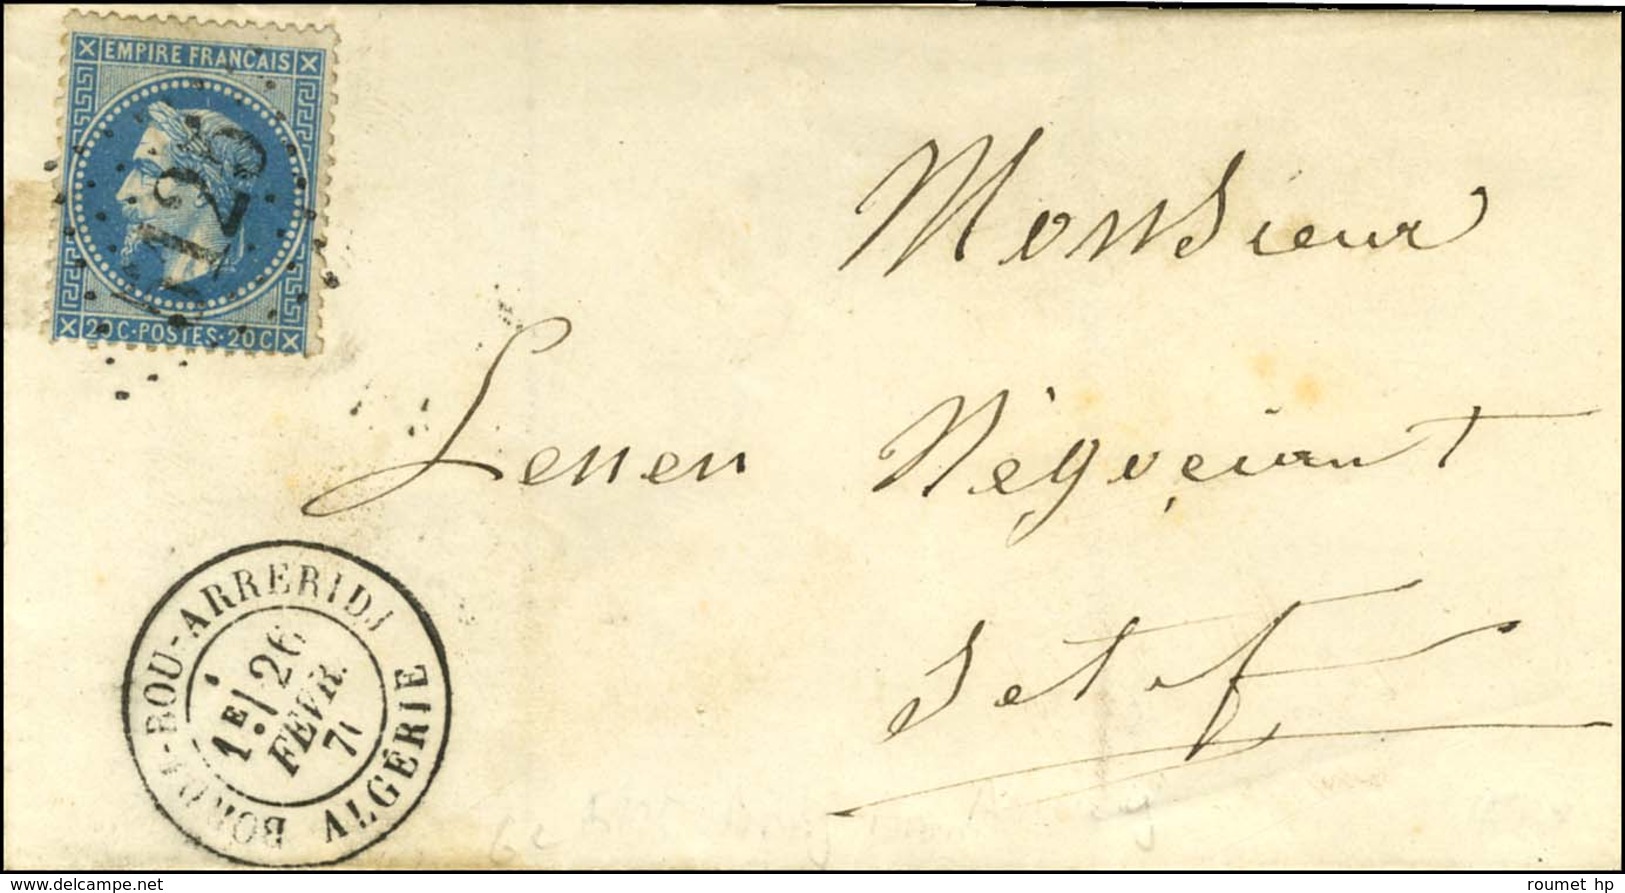 EMPIRE FRANÇAIS
20 C · POSTES · 20 C
Monsieur
Négociant
Setif
BORDJ-BOU-ARRERIDJ
1E/ 26
FEVR.
71
ALGÉRIE
roumet hp